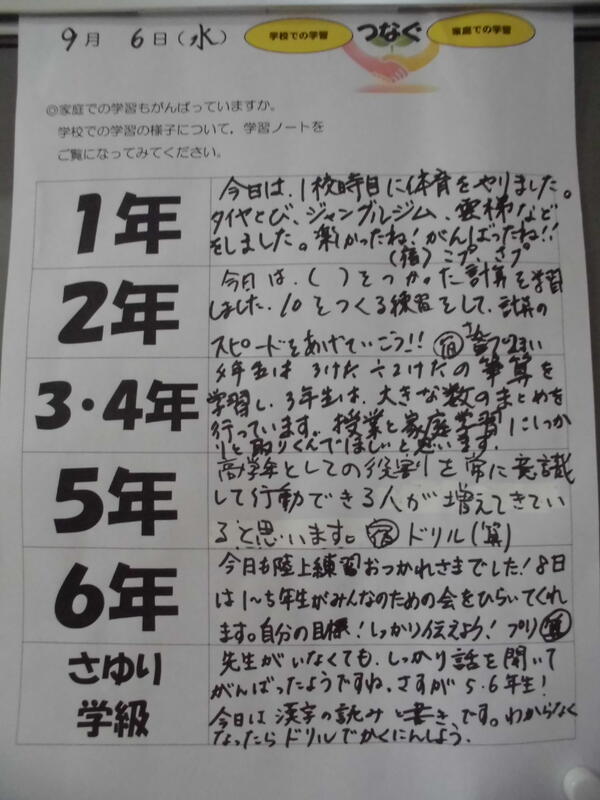 9月 6日(水)
学校での学習 つなぐ 家庭での学習
◎家庭での学習もがんばっていますか。
学校での学習の様子について,学習ノートを
ご覧になってみてください。
1年
今日は、1校時目に体育をやりました。
タイヤとび、ジャングルジム、雲梯など
をしました。楽しかったね!がんばったね!!
(宿)こプ、さプ
2年
今日は、( )をつかった計算を学習
しました.10をつくる練習をして、計算の
スピードをあげていこう!! 宿
3・4年
4年生は3けた÷2けたの筆算を
学習し、3年生は、大きな数のまとめを
行っています。授業と家庭学習にしっか
りと取りくんでほしいと思います.
5年
高学年としての役割を常に意識
して行動できる人が増えてきてい
ると思います。宿ドリル(算)
6年
今日も陸上練習おつかれさまでした!8日
は1~5年生がみんなのための会をひらいてくれ
ます。自分の目標!しっかり伝えよう! プリ算
さゆり
学級
先生がいなくても、しっかり話を聞いて
がんばったようですね。さすが5・6年生!
今日は漢字の読みと書き、です。わからなく
なったらドリルでかくにんしよう.